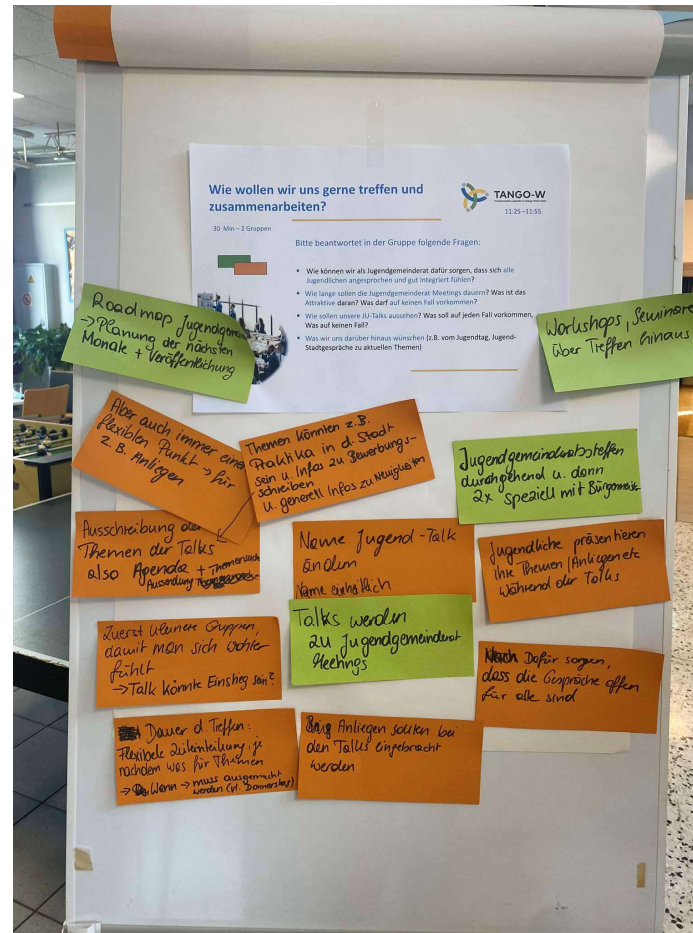 Wie wollen wir uns gerne treffen und
zusammenarbeiten?
TANGO-W
11:25 –11:55
30 Min – 2 Gruppen
Bitte beantwortet in der Gruppe folgende Fragen:
Wie können wir als Jugendgemeinderat dafür sorgen, dass sich alle
Jugendlichen angesprochen und gut integriert fühlen?
Wie lange sollen die Jugendgemeinderat Meetings dauern? Was ist das
Attraktive daran? Was darf auf keinen Fall vorkommen?
Wie sollen unsere JU-Talks aussehen? Was soll auf jeden Fall vorkommen,
Was auf keinen Fall?
Was wir uns darüber hinaus wünschen (z.B. vom Jugendtag, Jugend-
Stadtgespräche zu aktuellen Themen)
Roadmap Jugendgemein
→Planung der nächsten
Monate + Veröffentlichung
Workshops, Seminare
über Treffen hinaus
Aber auch immer einen
flexiblen Punkt → für
z.B. Anliegen
Themen könnten z.B.
Praktika in d. Stadt
sein u. Infos zu Bewerbungs-
schreiben
u. generell Infos zu Neuigkeiten
Jugendgemeinderatstreffen
durchgehend u. dann
2x speziell mit
Ausschreibung der
Themen der Talks
also Agenda +
Aussendung
Name Jugend-Talk
ändern
Name einheitlich
Jugendliche präsentieren
ihre Themen/Anliegen etc
während der Talks
Zuerst kleinere Gruppen,
damit man sich wohler
fühlt
→Talk könnte Einstieg sein?
Talks werden
zu Jugendgemeinderat
Meetings
Dafür sorgen,
dass die Gespräche offen
für alle sind
Dauer d. Treffen:
Flexibele Zeiteinteilung, je
nachdem was für Themen
→ Wann → muss ausgemacht
werden (vl. Donnerstag)
Anliegen sollten bei
den Talks eingebracht
werden